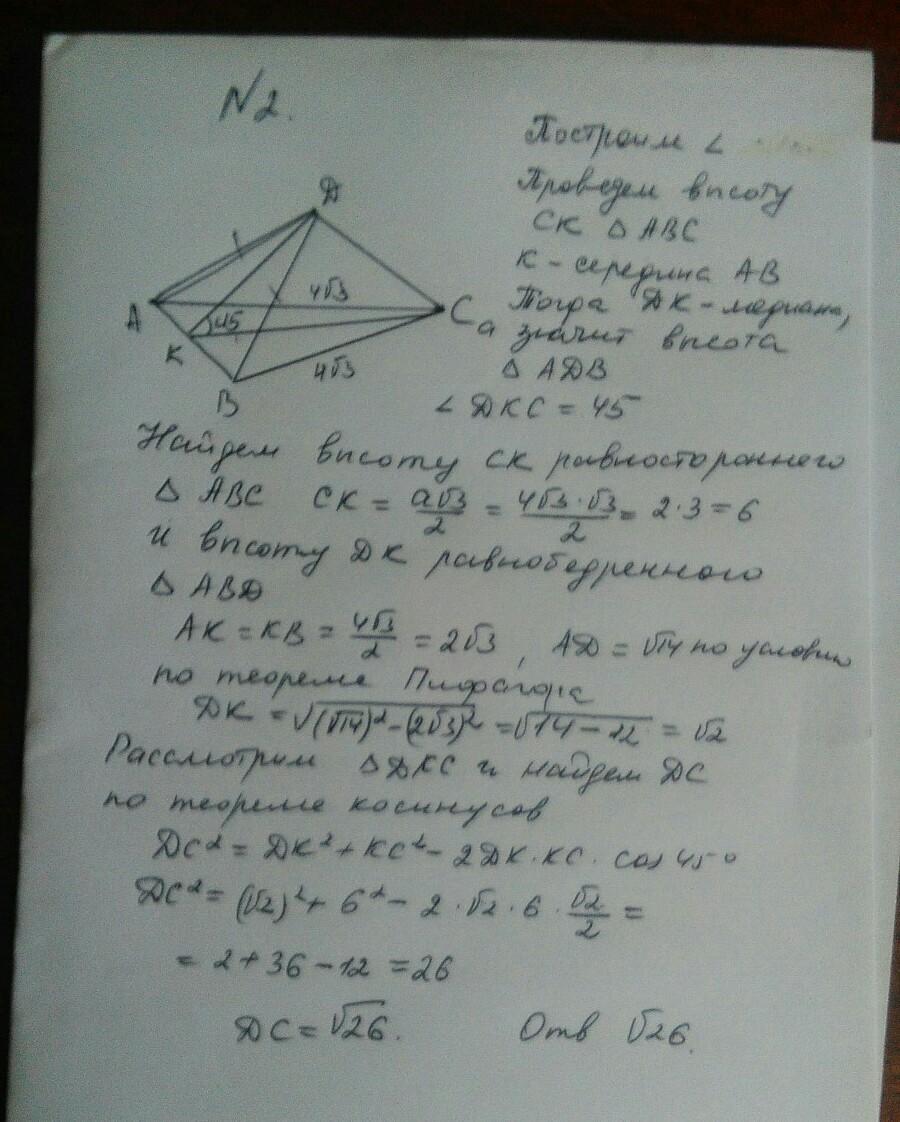 N 2.
Построим ∠
Проведем высоту
CK △ ABC
K - середина AB
Тогда ДK - медиана,
а значит высота
△ АДВ
∠ ДKC = 45
Д
A
K
B
C
45
4√3
4√3
Найдем высоту CK равностороннего
△ ABC CK = a√3/2 = 4√3·√3/2 = 2·3 = 6
и высоту ДK равнобедренного
△ АВД
AK = KB = 4√3/2 = 2√3 , АД = √14 по условию
по теореме Пифагора
ДK = √(√14)² - (2√3)² = √14 - 12 = √2
Рассмотрим △ДKC и найдем ДC
по теореме косинусов
ДC² = ДK² + KC² - 2ДK·KC· cos 45°
ДC² = (√2)² + 6² - 2·√2·6·√2/2 =
= 2 + 36 - 12 = 26
ДC = √26. Отв √26.